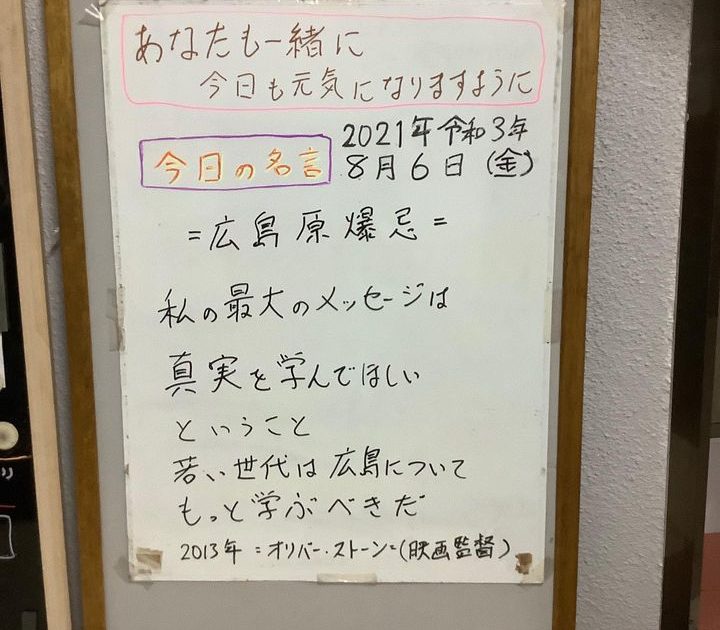 あなたも一緒に
今日も元気になりますように
2021年令和3年
今日の名言 8月6日(金)
=広島原爆忌=
私の最大のメッセージは
真実を学んでほしい
ということ
若い世代は広島について
もっと学ぶべきだ
2013年=オリバー・ストーン=(映画監督)